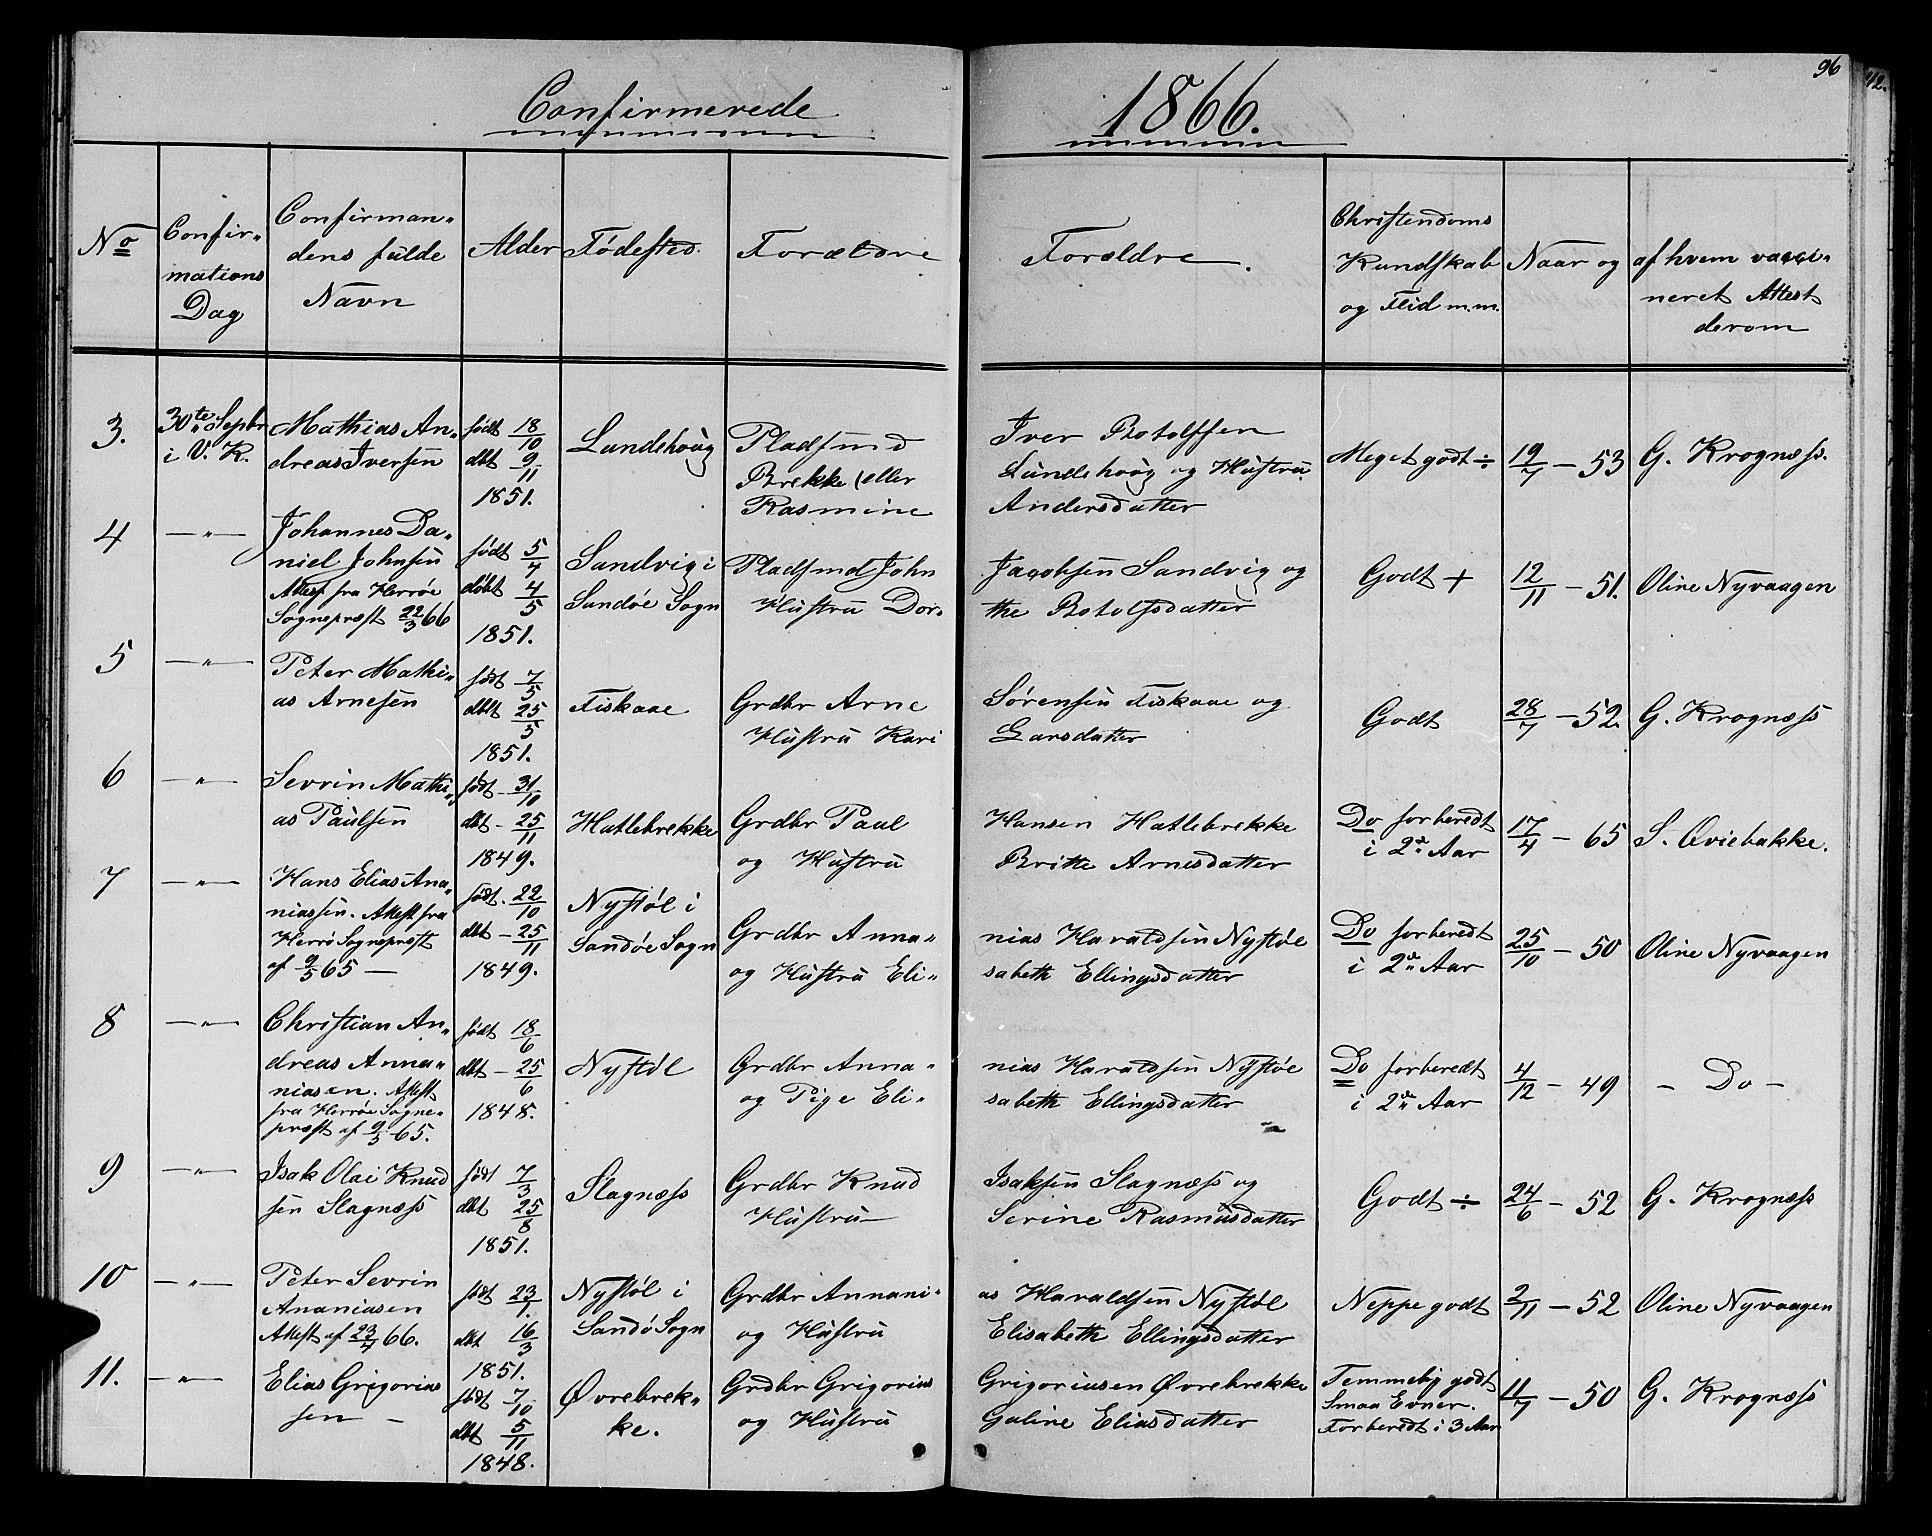 96
42.
Confirmerede 1866.
No
Confir-
mations
Dag
Confirman-
dens fulde
Navn
Alder
Fødested.
Forældre
Forældre.
Christendoms
Kundskab
og Flid m.m.
Naar og
af hvem vacci-
neret Attest
derom
3.
30te Sepbr
i V. K.
Mathias An-
dreas Iversen
født 18/10
dbt 9/11
1851.
Lundehoug
Pladsmd Iver Botolfsen
Brekke (eller Lundehoug og Hustru
Rasmine Andersdatter
Meget godt ÷
19/7 - 53
G. Krognæss.
4
-"-
Johannes Da-
niel Johnsen
Attest fra Herrøe
Sognepræst 22/3 66
født 5/4
døbt 4/5
1851.
Sandvig i
Sandøe Sogn
Pladsmd John Jacobsen Sandvig og
Hustru Dor- the Botolfsdatter
Godt +
12/11 - 51.
Oline Nyvaagen
5
-"-
Peter Mathi-
as Arnesen
født 7/5
dbt 25/5
1851.
Fiskaae
Grdbr Arne Sørensen Fiskaae og
Hustru Kari Larsdatter
Godt
28/7 - 52.
G. Krognæss
6
-"-
Sevrin Mathi-
as Paulsen
født - 31/10
dbt - 25/11
1849.
Hatlebrekke
Grdbr Paul Hansen Hatlebrekke
og Hustru Britte Arnesdatter
Do forberedt
i 2de Aar
17/4 - 65
S. Øviebakke.
7
-"-
Hans Elias Ana-
niassen. Attest fra
Herrø Sognepræst
af 9/5 65 -
født. 22/10
dbt - 25/11
1849.
Nystøl i
Sandøe Sogn
Grdbr Anna- nias Haraldsen Nystøl
og Hustru Eli- sabeth Ellingsdatter
Do forberedt
i 2de Aar
25/10 - 50
Oline Nyvaagen
8
-"-
Christian An-
dreas Anna-
niasen. Attest
fra Herrøe Sogne-
præst af 9/5 65.
født 18/6
dbt - 25/6
1848.
Nystøl
Grdbr Anna- nias Haraldsen Nystøl
og Pige Eli- sabeth Ellingsdatter
Do forberedt
i 2de Aar
4/12 - 49
- Do -
9
-"-
Isak Olai Knud
sen Slagnæss
født 7/3
dbt 25/8
1851.
Slagnæss
Grdbr Knud Isaksen Slagnæss og
Hustru Serine Rasmusdatter
Godt ÷
24/6 - 52
G. Krognæss
10
-"-
Peter Sevrin
Ananiasen
Attest af 23/4 66.
født 23/1.
dbt 16/3
1851.
Nystøl i
Sandø Sogn
Grdbr Annani- as Haraldsen Nystøl
og Hustru Elisabeth Ellingsdatter
Neppe godt
2/11 - 52
Oline Nyvaagen
11.
-"-
Elias Grigorius
sen -
født 7/10
dbt 5/11
1848.
Øvrebrek-
ke.
Grdbr Grigorius Grigoriusen Øvrebrekke
og Hustru Galine Eliasdatter
Temmelig godt
Smaa Evner.
Forberedt i 3 Aar
11/7 - 50
G. Krognæss